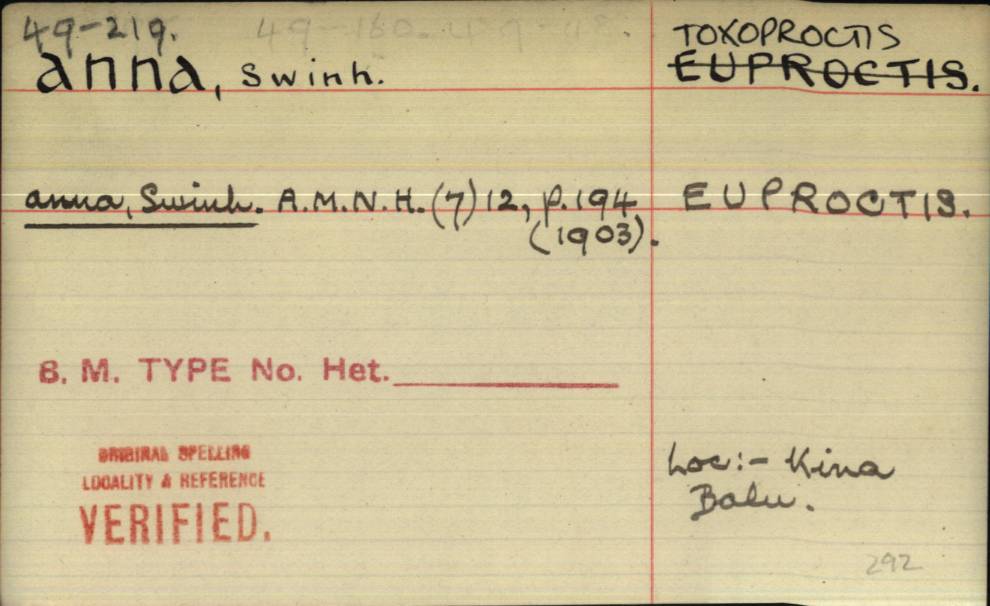 49-219. 49-160. 49-
TOXOPROCTIS
anna, Swinh. EUPROCTIS.
anna, Swinh. A.M.N.H. (7) 12, p.194 EUPROCTIS.
(1903).
B. M. TYPE No. Het.
ORIGINAL SPELLING
LOCALITY & REFERENCE
VERIFIED.
Loc:- Kina
Balu.
292